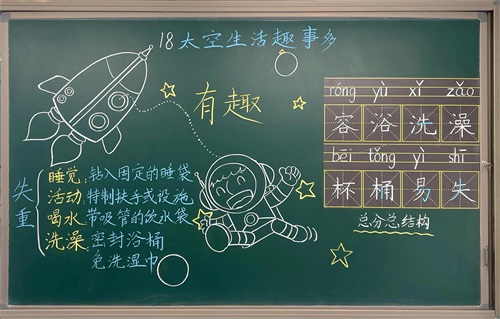 18 太空生活趣事多
有趣
失重
睡觉:钻入固定的睡袋
活动:特制扶手或设施
喝水:带吸管的饮水袋
洗澡:密封浴桶
免洗湿巾
róng yù xǐ zǎo
容浴洗澡
bēi tǒng yì shī
杯桶易失
总分总结构